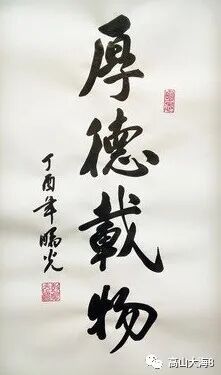 厚德載物
丁酉年曉光
高山大海8